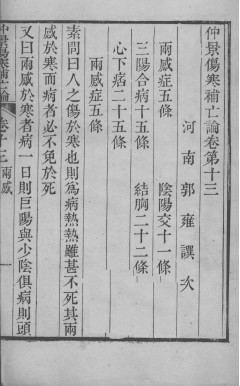 仲景傷寒補亡論卷第十三
河南郭雍譔次
兩感症五條　陰陽交十一條
三陽合病十五條　結胸二十二條
心下痞二十五條
兩感症五條
素問曰人之傷於寒也則為病熱熱雖甚不死其兩
感於寒而病者必不免於死
又曰兩感於寒者病一日則巨陽與少陰俱病則頭
仲景傷寒補亡論　卷十三　兩感